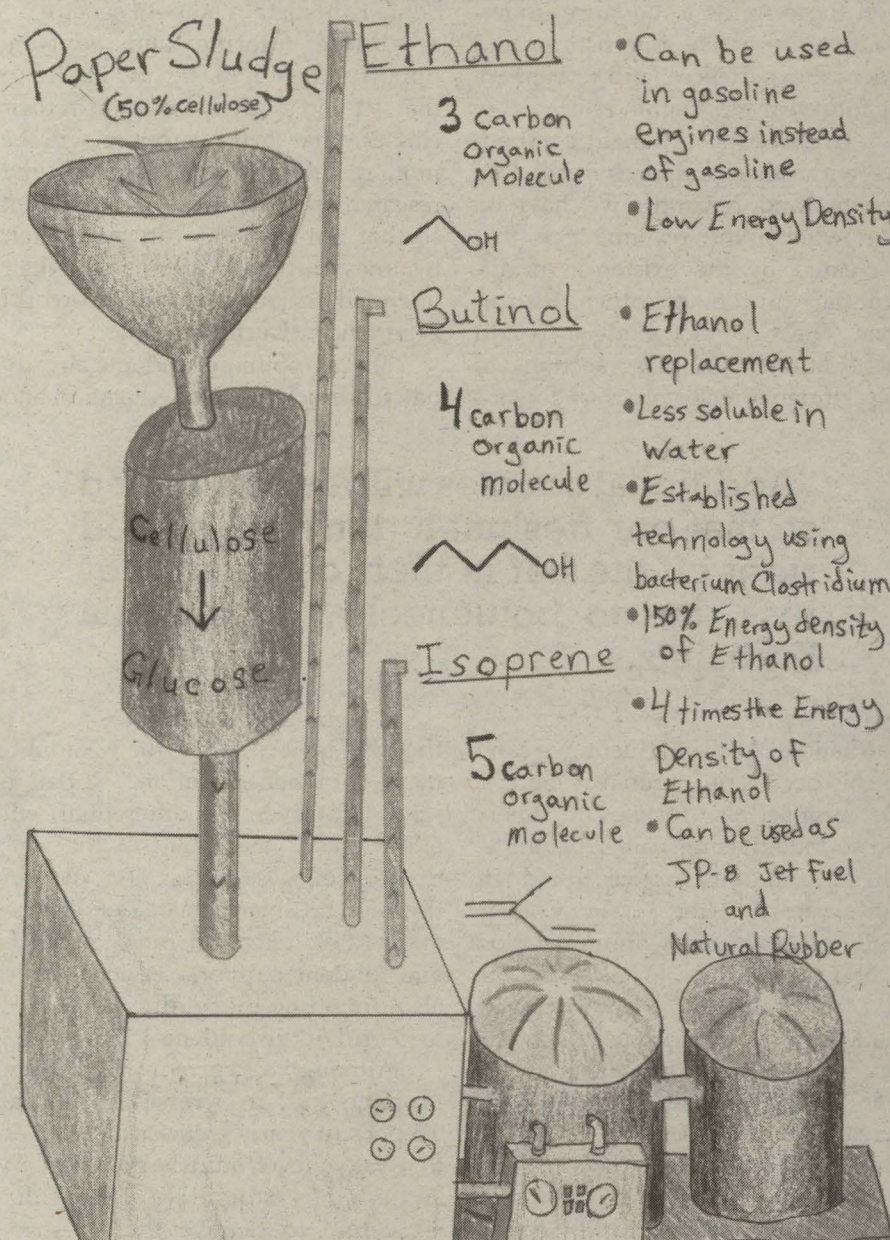 Paper Sludge
(50% cellulose)
Cellulose
Glucose
Ethanol
3 carbon
organic
Molecule
OH
• Can be used
in gasoline
engines instead
of gasoline
• Low Energy Density
Butinol
4 carbon
organic
molecule
OH
• Ethanol
replacement
• Less soluble in
Water
• Established
technology using
bacterium Clostridium
• 150% Energy density
of Ethanol
Isoprene
5 carbon
organic
molecule
• 4 times the Energy
Density of
Ethanol
• Can be used as
JP-8 Jet Fuel
and
Natural Rubber